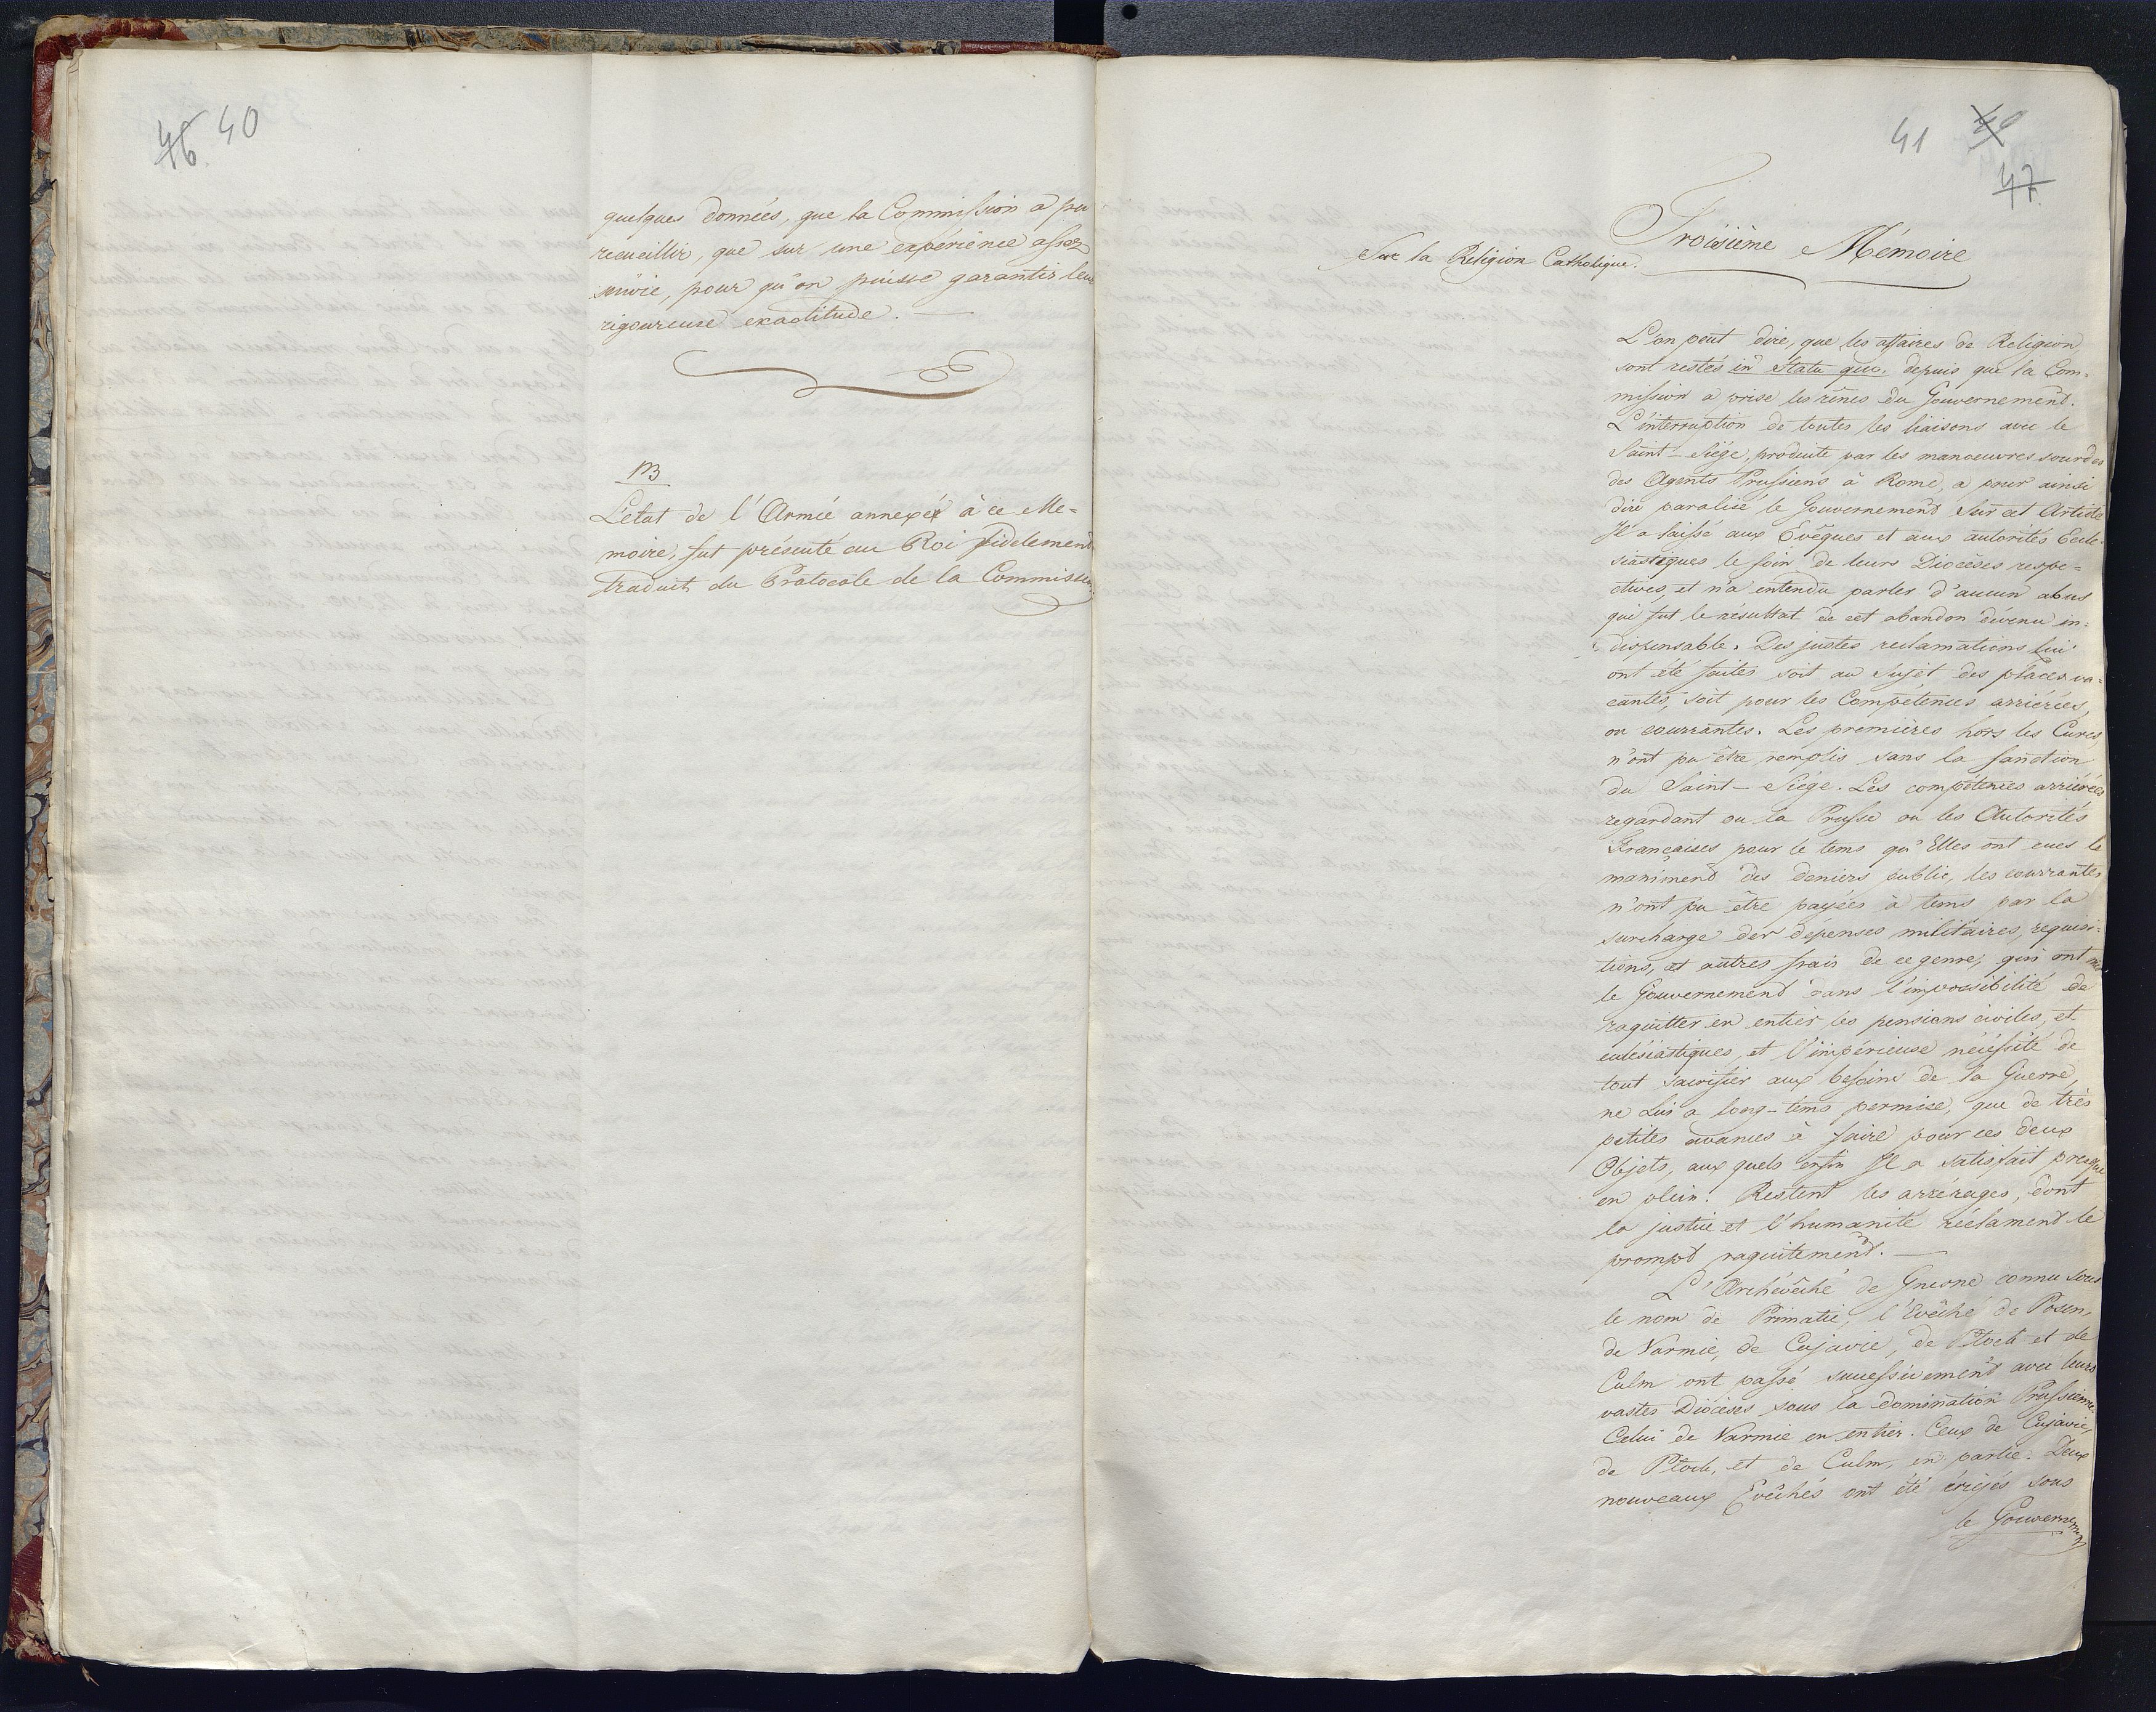 46. 40
quelques données, que la Commission a pu
recueillir, que sur une expérience assez
suivie, pour qu'on puisse garantir leur
rigoureuse exactitude.
NB
L'état de l'Armée annexée à ce Me-
moire, fut présenté au Roi fidelement
traduit du Protocole de la Commission.
41 40
47
Troisième Mémoire
Sur la Religion Catholique.
L'on peut dire, que les affaires de Religion
sont restés in statu quo, depuis que la Com-
mission a prise les rênes du Gouvernement.
L'interruption de toutes les liaisons avec le
Saint-Siége, produite par les manoeuvres sourdes
des Agents Prussiens à Rome, a pour ainsi
dire paralisé le Gouvernement sur cet Article
Il a laissé aux Evêques et aux autorités Eccle-
siastiques le soin de leurs Diocèses respe-
ctives, et n'a entendu parler d'aucun abus
qui fut le résultat de cet abandon dévenu in-
dispensable. Des justes reclamations lui
ont été faites soit au sujet des places va-
cantes, soit pour les Compétences arriérées,
ou courrantes. Les premières hors les Cures,
n'ont pu être remplis sans la sanction
du Saint-Siége. Les compétences arriérées
regardant ou la Prusse ou les Autorités
Françaises pour le tems qu'Elles ont eues le
maniment des deniers public, les courrantes
n'ont pu être payées à tems par la
surcharge des dépenses militaires, requisi-
tions, et autres frais de ce genre, qui ont mis
le Gouvernement dans l'impossibilité de
raquitter en entier les pensions civiles, et
eclésiastiques, et l'impérieuse nécéssité de
tout sacrifier aux besoins de la Guerre,
ne Lui a long-tems permise, que de très
petites avances à faire pour ces deux
Objets, aux quels enfin Il a satisfait presque
en plein. Restent les arrérages, dont
la justice et l'humanité réclament le
prompt raquitement.
L'Archévêché de Gnesne connu sous
le nom de Primatie, l'Evêché de Posen,
de Varmie, de Cujavie, de Plock et de
Culm ont passé successivement avec leurs
vastes Diocèses sous la domination Prussienne.
Celui de Varmie en entier. Ceux de Cujavie,
de Plock, et de Culm, en partie. Deux
nouveaux Evêchés ont été érigés sous
le Gouvernement